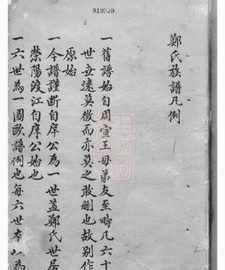 919949
鄭氏族譜凡例
一舊譜始自周宣王母弟友至時凡六十
世世遠莫徵而亦莫之敢刪也故別作
原始
一今譜謹斷自庠公為一世蓋鄭氏世居
滎陽渡江自庠公始也
一六世為一圖歐譜例也每六世